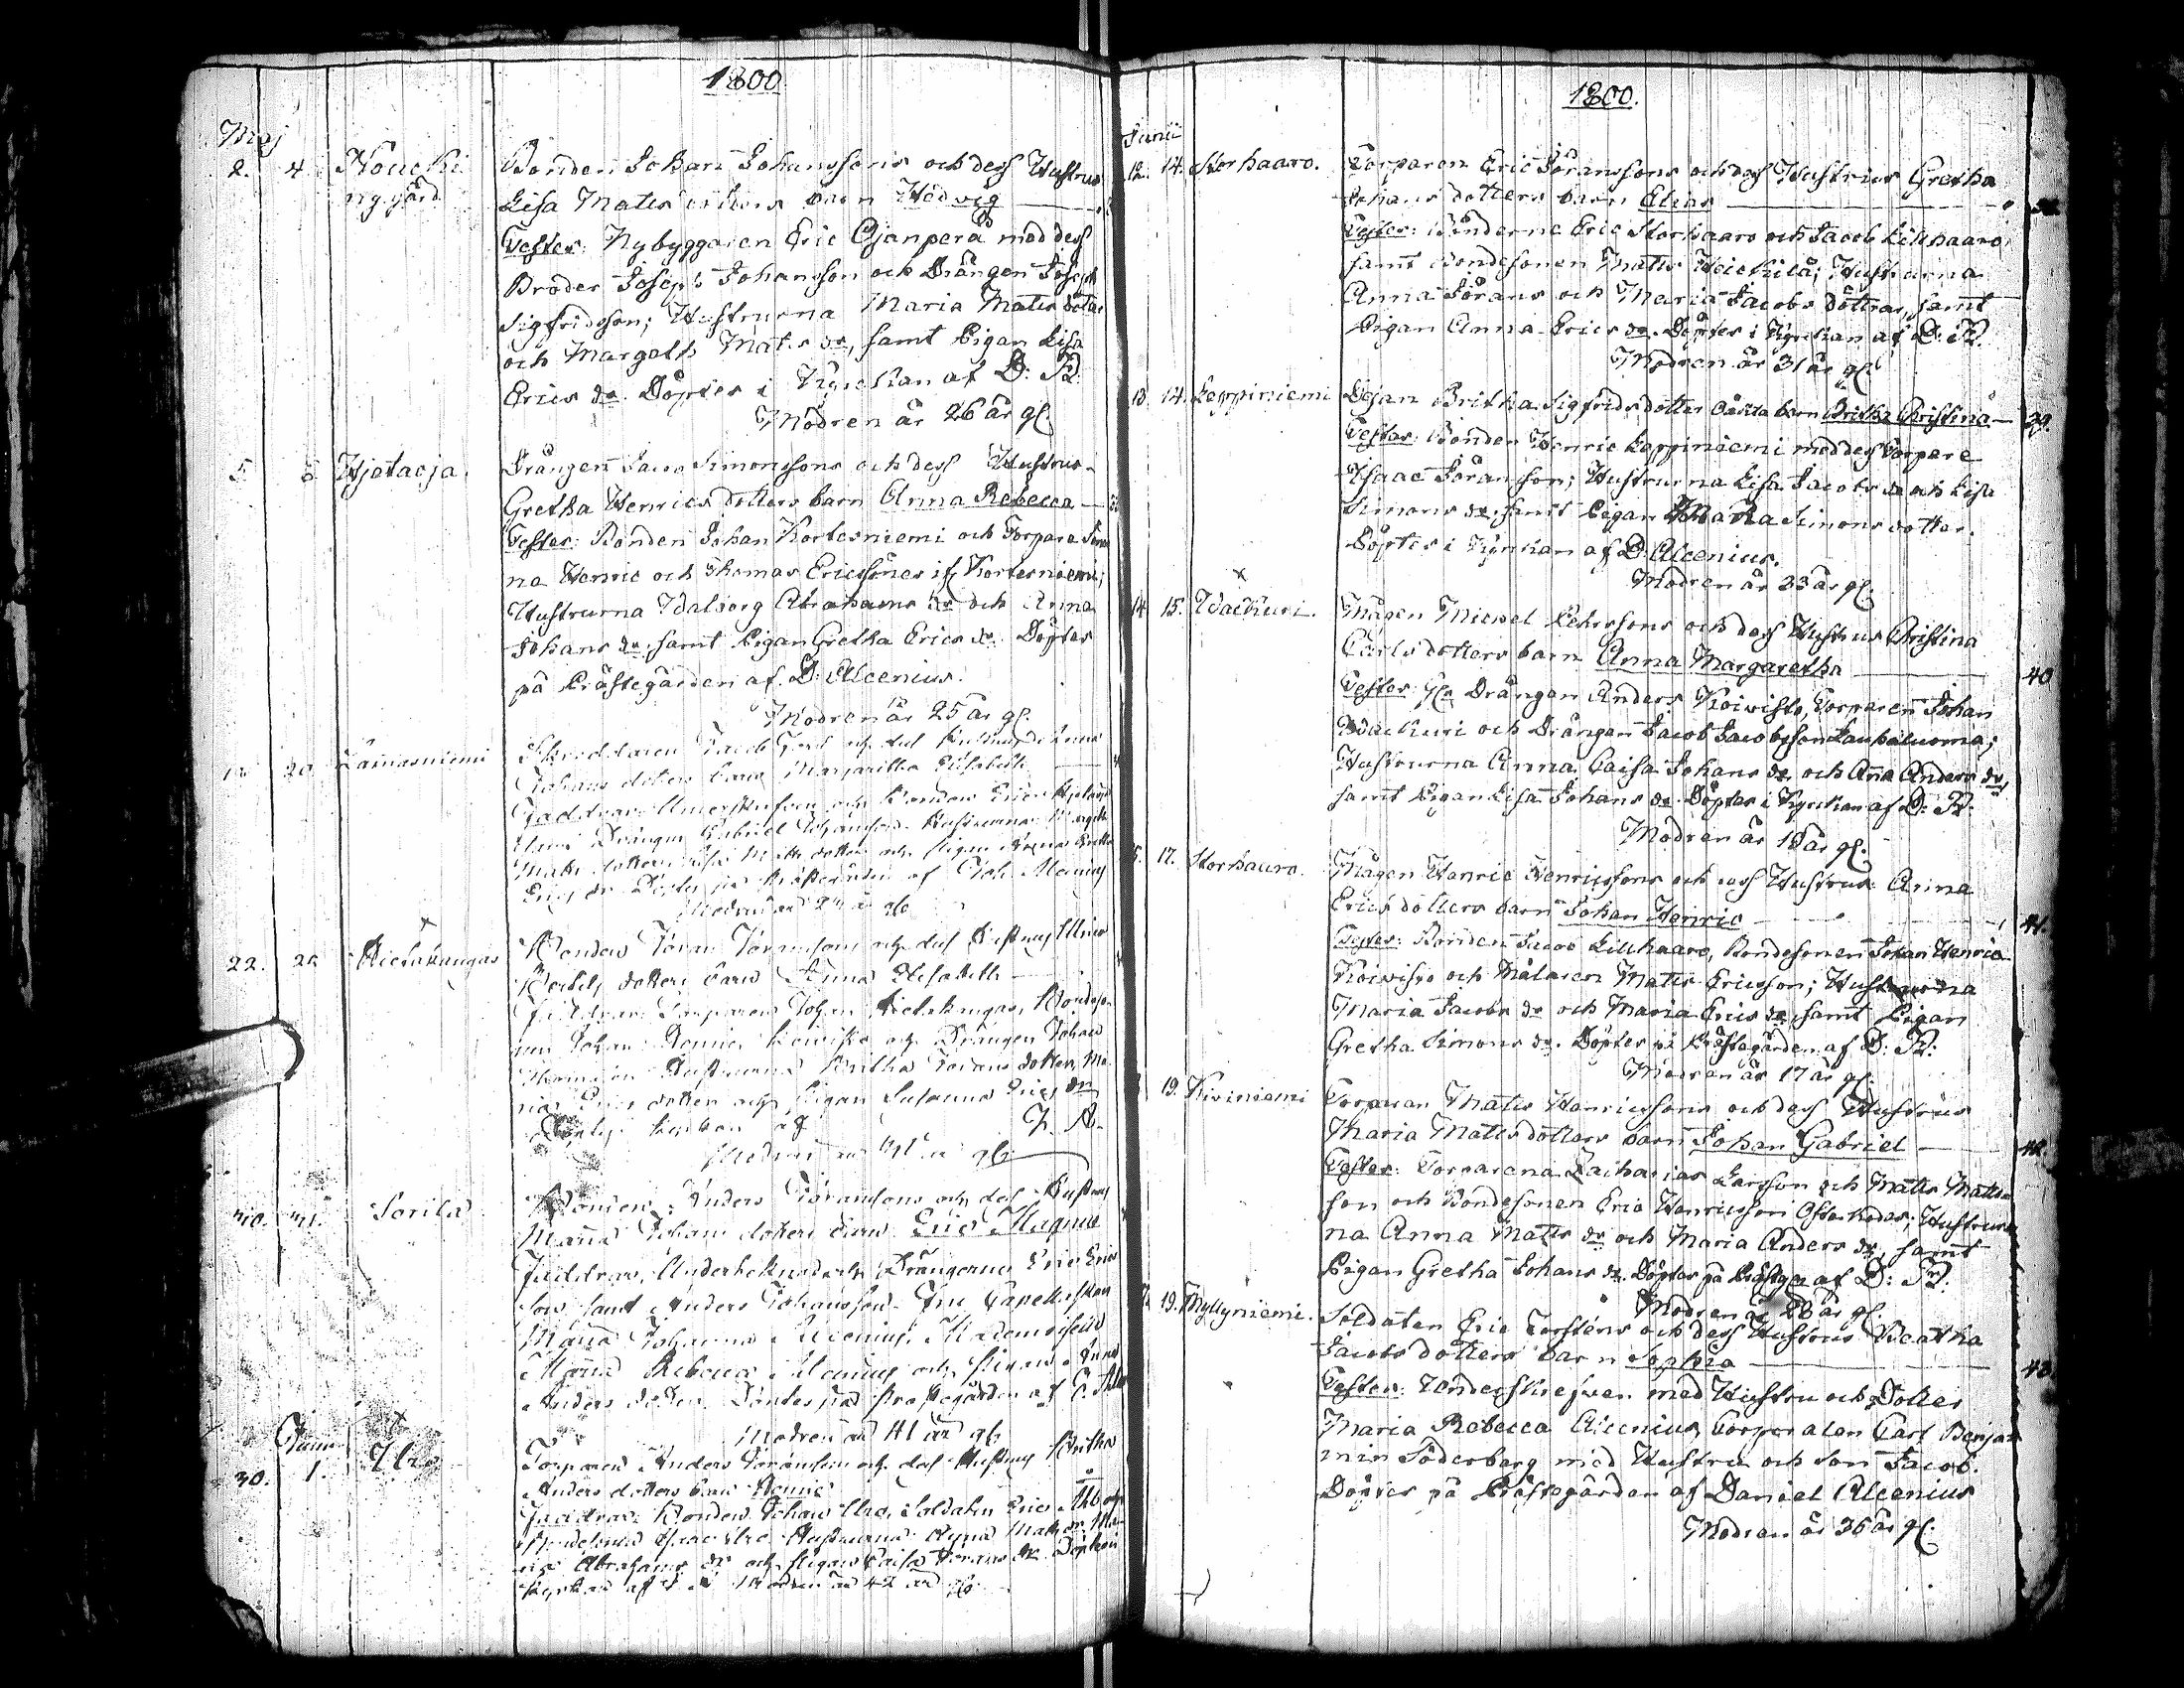 1800.
Maj
2. 4. Noucki Bonden Johan Johanssons och dess Hustrus
ng.gård Lisa Mats dotters barn Hedvig
Testes: Nybyggaren Eric Ojanperä med dess
Broder Joseph Johansson och Drängen Joseph
Sigfridsson; Hustrurna Maria Mats dotter
och Margeth Mats dr, samt Pigan Lisa
Erics dr. Döptes i Kyrckan af D: R:
Modren är 26 år gl.
5. Hjetaoja. Drängen Simonssons och dess Hustrus
Gretha Henrics dotters barn Anna Rebecca
Testes: Bonden Johan Kortesniemi och Torpare
na Henric och Thomas Ericssöner if. Kortesniemi;
Hustrurna Walborg Abrahams dr och Anna
Johans dr. samt Pigan Gretha Erics dr. Döptes
på Prästegården af D: Alcenius.
Modren är 25 år gl.
20 Lamasniemi Skreddaren Jacob och dess Hustrus
Johans dotters barn Margaretha Elisabeth
Faddrar: och Bonden Eric
Drängen Gabriel Johansson Hustrurna
Mats dotter Mats dotter och Pigan
Erics dr Döptes på Prästegården af
Modren är år gl.
22. Hietakangas Bonden Göran Göranssons och dess Hustrus
dotters barn Anna Elisabeth
Faddrar: Torparen Johan Hietakangas, Bondeso
nen Johan Henric Koivisto och Drängen Johan
Thomasson Hustrurna Britha Görans dotter, Ma
ria Erics dotter och Pigan Susanna Erics dr
Döptes i Kyrkan af
Modren är år gl.
Sorila Bonden Anders Göranssons och dess Hustrus
Maria Johans dotters barn Eric Magnus
Faddrar, Underteknad och Drängarne Eric Erics
son samt Anders Johansson Fru Capellskan
Maria Johanna Alcenius, Mademoiselle
Maria Rebecca Alcenius och Pigan Anna
Anders dotter. Döptes på Prästegården af
Modren är 41 år gl.
Junii
30. 1. Ylro Torparen Anders Göransson och dess Hustrus Britha
Anders dotters barn Henric
Faddrar: Bonden Johan Ylro, Soldaten Eric
Bondesonen Isaac Ylro Hustrurna Mats dr, Ma
ria Abrahams dr och Pigan Caisa Görans dr Döptes i
Kyrkan af Modren är 42 år gl.
1800.
Junii
12. 14. Storhaaro. Torparen Eric Göranssons och dess Hustrus Gretha
Johans dotters barn Elias
Testes: Bönderne Eric Storhaaro och Jacob Lillhaaro,
samt Bondesonen Matts Heickilä; Hustrurna
Anna Görans och Maria Jacobs döttrar, samt
Pigan Anna Erics dr. Döptes i Kyrckan af D: R.
Modren är 31 år gl.
13. 14. Leppiniemi Dejan Britha Sigfrids dotters oäkta barn Britha Christina 39.
Testes: Bonden Henric Leppiniemi med dess Torpare
Isaac Göransson; Hustrurna Lisa Jacobs dr och Lisa
Simons dr. samt Pigan Maria Simons dotter.
Döptes i Kyrckan af D. Alcenius.
Modren är 33 år gl.
14 15. Wäckuri. Mågen Michel Peterssons och dess Hustrus Christina
Carls dotters barn Anna Margaretha 40
Testes: Drängen Anders Koivisto, Torparen Johan
Wäckuri och Drängen Jacob Jacobsson Lauhaluoma;
Hustrurna Anna Caisa Johans dr och Anna Anders dr,
samt Pigan Lisa Johans dr. Döptes i Kyrckan af D: R:
Modren är 18 år gl.
17. Storhaaro. Mågen Henric Henricssons och dess Hustrus Anna
Erics dotters barn Johan Henric 41.
Testes: Bonden Jacob Lillhaaro, Bondesonen Johan Henric
Koivisto och Målaren Matts Ericsson; Hustrurna
Maria Jacobs dr och Maria Erics dr, samt Pigan
Gretha Simons dr. Döptes på Prästegården af D: R:
Modren är 17 år gl.
19. Kiviniemi Torparen Matts Henricssons och dess Hustrus
Maria Matts dotters barn Johan Gabriel 42.
Testes: Torparena Zacharias Larsson och Matts Matts
son och Bondesonen Eric Henricsson Hustrur
na Anna Matts dr och Maria Anders dr, samt
Pigan Gretha Johans dr. Döptes på Prästeg. af D: R.
Modren är 28 år gl.
19. Myllyniemi. Soldaten Eric Torstens och dess Hustrus Beatha
Jacobs dotters barn Sophia 43.
Testes: Underskrefven med Hustru och Dotter
Maria Rebecca Alcenius, Corporalen Carl Benja
min Söderberg med Hustru och son Jacob.
Döptes på Prästegården af Daniel Alcenius
Modren är 36 år gl.